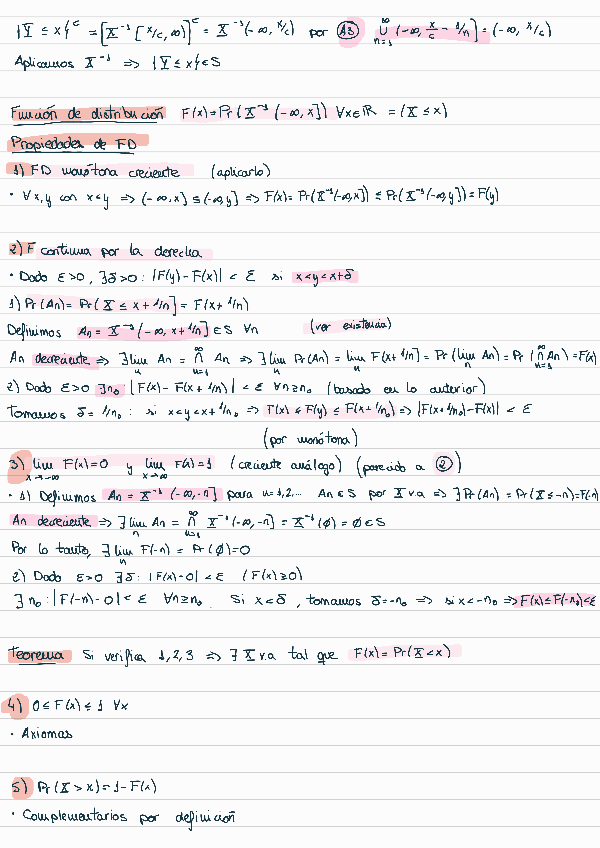 {Y ≤ x}ᶜ = [X⁻¹[x/c, ∞)]ᶜ = X⁻¹(-∞, x/c) por A3 ∪_{n=1}^∞ (-∞, x/c - 1/n] = (-∞, x/c)
Aplicamos X⁻¹ ⇒ {Y ≤ x} ∈ S
Función de distribución F(x) = Pr(X⁻¹(-∞, x]) ∀x∈ℝ = (X ≤ x)
Propiedades de FD
1) FD monótona creciente (aplicarlo)
· ∀x,y con x<y ⇒ (-∞, x] ⊆ (-∞, y] ⇒ F(x) = Pr(X⁻¹(-∞, x]) ≤ Pr(X⁻¹(-∞, y]) = F(y)
2) F continua por la derecha
· Dado ε>0, ∃δ>0: |F(y) - F(x)| < ε si x<y<x+δ
1) Pr(An) = Pr(X ≤ x + 1/n] = F(x + 1/n)
Definimos An = X⁻¹(-∞, x + 1/n] ∈ S ∀n (ver existencia)
An decreciente ⇒ ∃ lim_n An = ∩_{n=1}^∞ An ⇒ ∃ lim_n Pr(An) = lim_n F(x + 1/n] = Pr(lim_n An) = Pr(∩_{n=1}^∞ An) = F(x)
2) Dado ε>0 ∃n₀: |F(x) - F(x + 1/n)| < ε ∀n≥n₀ (basado en lo anterior)
Tomamos δ = 1/n₀ : si x<y<x + 1/n₀ ⇒ F(x) ≤ F(y) ≤ F(x + 1/n₀) ⇒ |F(x + 1/n₀) - F(x)| < ε
(por monótona)
3) lim_{x→-∞} F(x) = 0 y lim_{x→∞} F(x) = 1 (creciente análogo) (parecido a 2)
· 1) Definimos An = X⁻¹(-∞, -n] para n = 1,2,... An ∈ S por X v.a ⇒ ∃ Pr(An) = Pr(X ≤ -n) = F(-n)
An decreciente ⇒ ∃ lim_n An = ∩_{n=1}^∞ X⁻¹(-∞, -n] = X⁻¹(∅) = ∅ ∈ S
Por lo tanto, ∃ lim_n F(-n) = Pr(∅) = 0
2) Dado ε>0 ∃δ: |F(x) - 0| < ε (F(x) ≥ 0)
∃n₀: |F(-n) - 0| < ε ∀n≥n₀ Si x<δ, tomamos δ = -n₀ ⇒ si x<-n₀ ⇒ F(x) ≤ F(-n₀) < ε
Teorema Si verifica 1,2,3 ⇒ ∃ X v.a tal que F(x) = Pr(X<x)
4) 0 ≤ F(x) ≤ 1 ∀x
· Axiomas
5) Pr(X > x) = 1 - F(x)
· Complementarios por definición